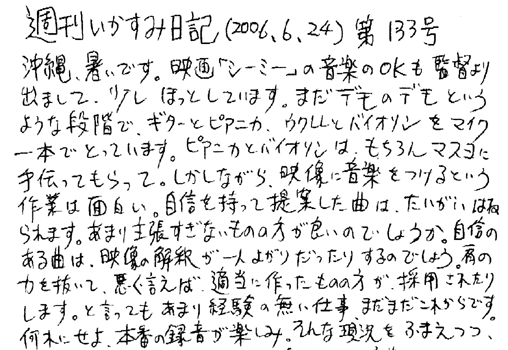 週刊いかすみ日記(2006.6.24)第133号
沖縄、暑いです。映画「シーミー」の音楽のOKも監督より
出まして、少しほっとしています。まだデモのデモという
ような段階で、ギターとピアニカ、ウクレレとバイオリンをマイク
一本でとっています。ピアニカとバイオリンは、もちろんマスヨに
手伝ってもらって。しかしながら、映像に音楽をつけるという
作業は面白い。自信を持って提案した曲は、たいがいはね
られます。あまり主張すぎないものの方が良いのでしょうか。自信の
ある曲は、映像の解釈が一人よがりだったりするのでしょう。肩の
力を抜いて、悪く言えば、適当に作ったものの方が、採用されたり
します。と言ってもあまり経験の無い仕事、まだまだこれからです。
何れにせよ、本番の録音が楽しみ。そんな現況をふまえつつ、